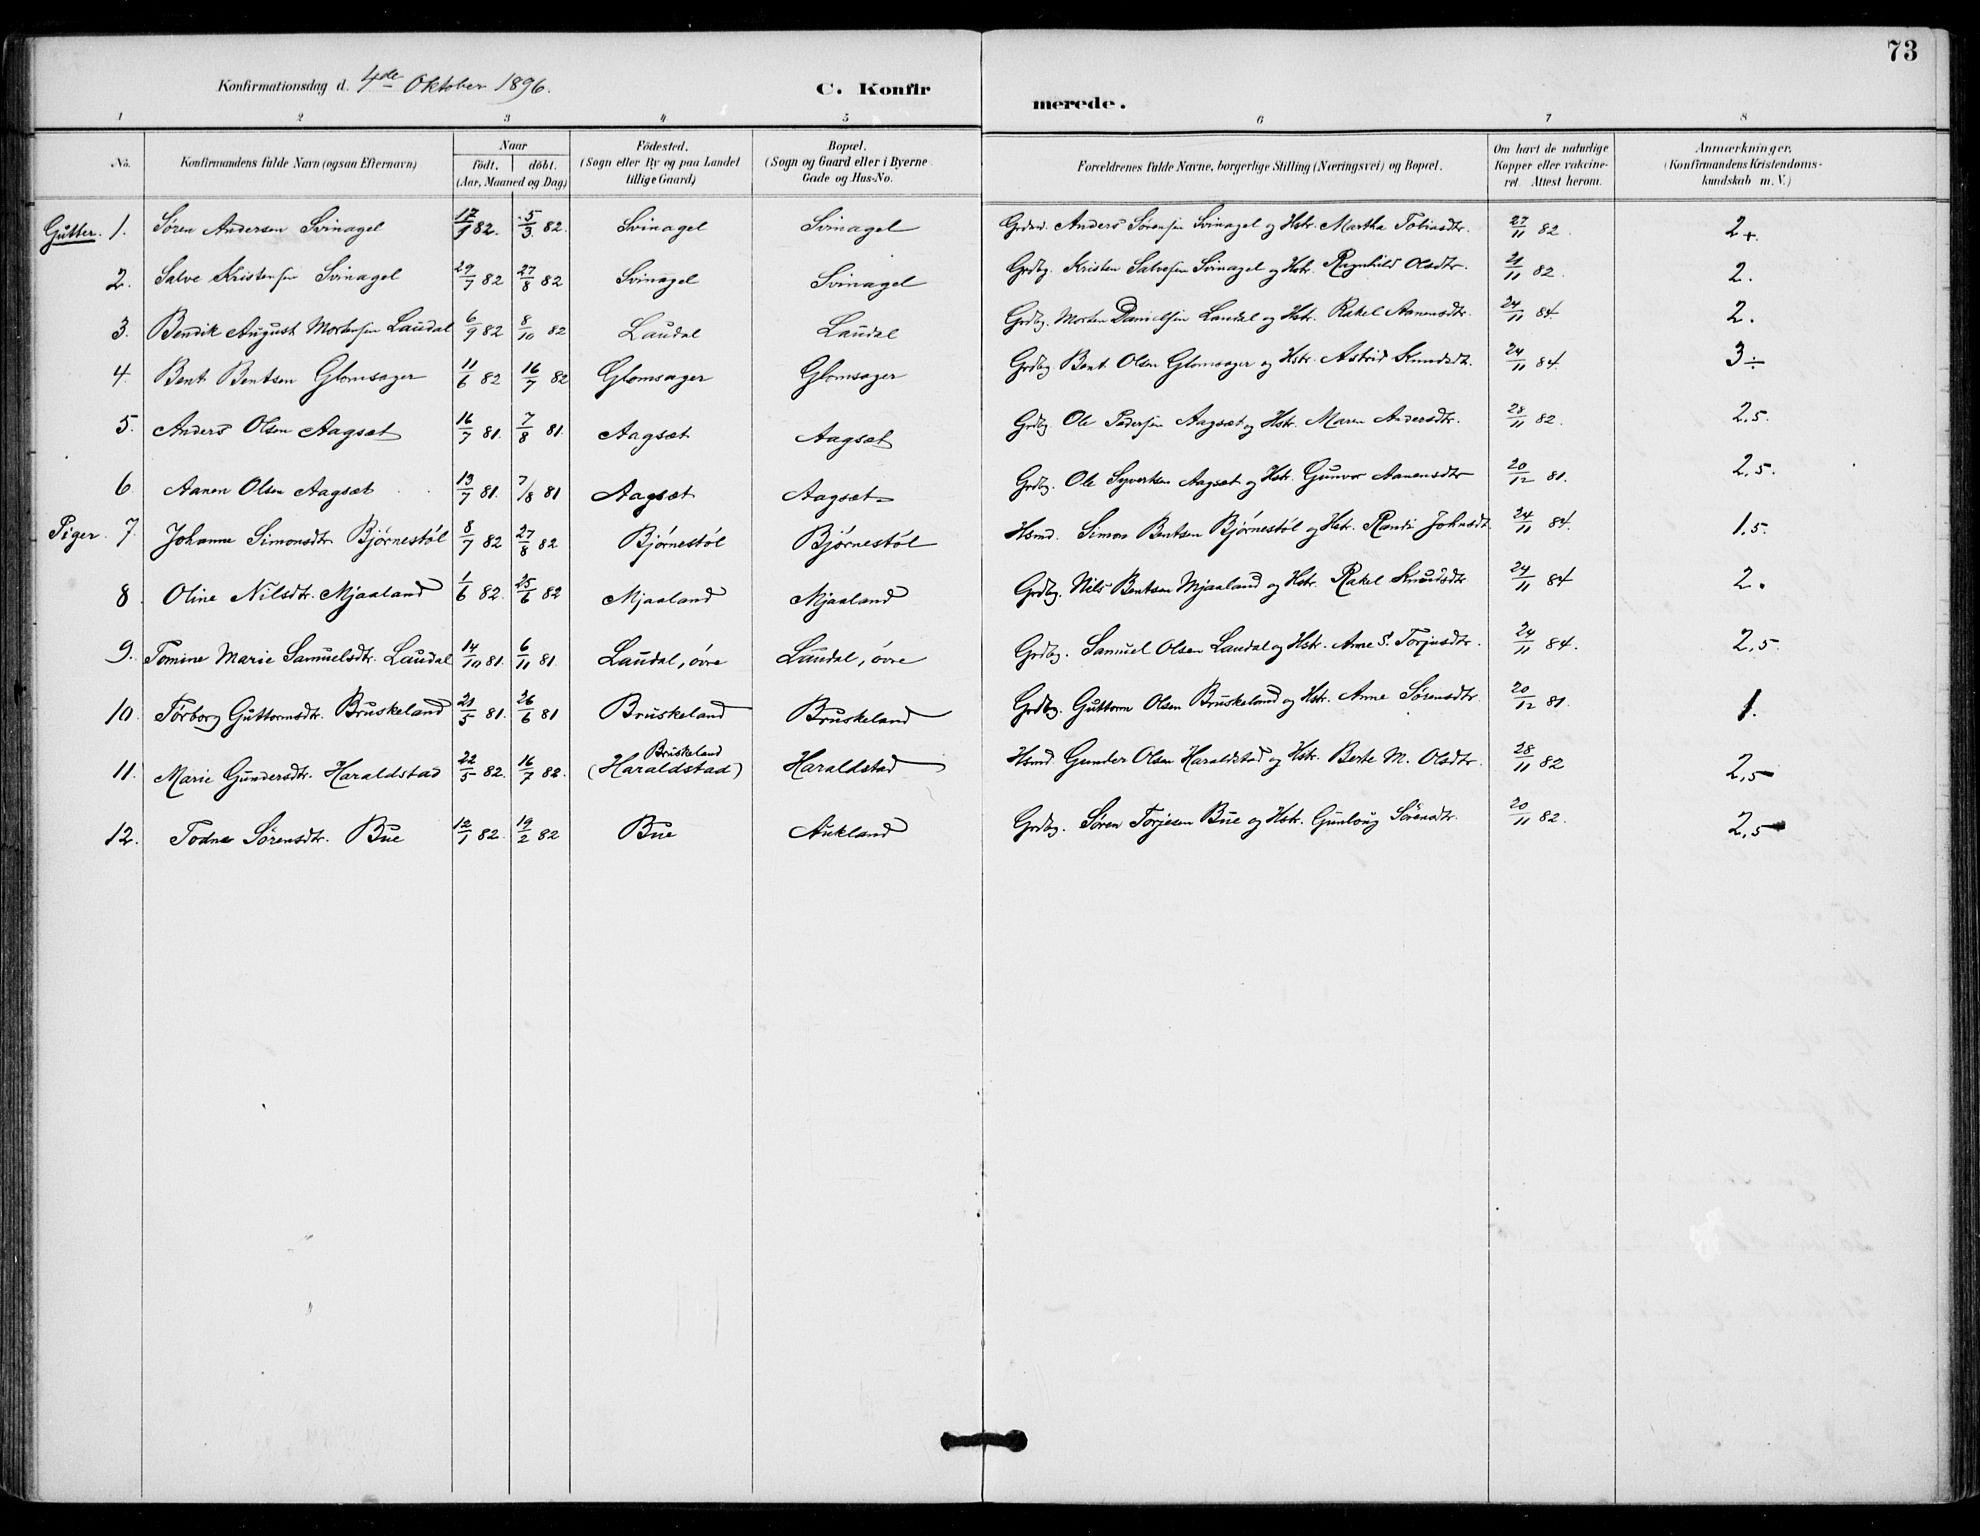 73
Konfirmationsdag d. 4de Oktober 1896.
C. Konfirmerede.
1 2 3 4 5 6 7 8
No. | Konfirmandens fulde Navn (ogsaa Efternavn) | Naar født. døbt. (Aar, Maaned og Dag) | Fødested. (Sogn eller By og paa Landet tillige Gaard) | Bopæl. (Sogn og Gaard eller i Byerne Gade og Hus-No. | Forældrenes fulde Navne, borgerlige Stilling (Næringsvei) og Bopæl. | Om havt de naturlige Kopper eller vakcineret. Attest herom. | Anmærkninger. (Konfirmandens Kristendomskundskab m. V.)
Gutter. 1. Søren Andersen Svinagel 17/1 82. 5/3 82. Svinagel Svinagel Anders Sørensen Svinagel og Hstr. Martha Tobiasdtr. 27/11 82. 2+.
2. Salve Kristensen Svinagel 29/7 82 27/8 82 Svinagel Svinagel Grdbg. Kristen Salvesen Svinagel og Hstr. Ragnhild Olsdtr. 21/11 82. 2.
3. Bendik August Mortensen Laudal 6/9 82 8/10 82 Laudal Laudal Grdbg. Morten Danielsen Laudal og Hstr. Rakel Aanensdtr. 24/11 84. 2.
4. Bent Bentsen Glomsager 11/6 82 16/7 82 Glomsager Glomsager Grdbg Bent Olsen Glomsager og Hstr. Astrid Knudsdt. 24/11 84. 3÷
5. Anders Olsen Aagsæt 16/7 81. 7/8 81. Aagsæt Aagsæt Grdbg. Ole Pedersen Aagsæt og Hstr. Maren Andersdtr. 28/11 82. 2,5.
6. Aanen Olsen Aagsæt 13/7 81. 7/8 81 Aagsæt Aagsæt Grdbg. Ole Syvertsen Aagsæt og Hstr. Gunvor Aanensdtr 20/12 81. 2,5.
Piger. 7. Johanne Simonsdtr. Bjørnestøl 8/7 82 27/8 82 Bjørnestøl Bjørnestøl Hsmd. Simon Bentsen Bjørnestøl og Hstr. Randi Johnsdt. 24/11 84. 1,5.
8. Oline Nilsdtr. Mjaaland 1/6 82. 25/6 82 Mjaaland Mjaaland Grdbg. Nils Bentsen Mjaaland og Hstr. Rakel Knudsdtr 24/11 84 2.
9. Tomine Marie Samuelsdtr. Laudal 14/10 81. 6/11 81. Laudal, øvre Laudal, øvre Grdbg. Samuel Olsen Laudal og Hstr. Anne S. Torjusdtr. 24/11 84. 2,5.
10. Torborg Guttormsdtr. Bruskeland 21/5 81. 26/6 81 Bruskeland Bruskeland Grdbg. Guttorm Olsen Bruskeland og Hstr. Anne Sørensdtr 20/12 81. 1.
11. Marie Gundersdtr. Haraldstad 22/5 82. 16/7 82. Bruskeland (Haraldstad) Haraldstad Hsmd. Gunder Olsen Haraldstad og Hstr. Berte M. Olsdtr. 28/11 82 2,5
12. Todne Sørensdtr. Bue 12/1 82. 19/2 82 Bue Aukland Grdbg. Søren Torjesen Bue og Hstr. Gunloug Sørensdtr. 20/11 82. 2,5